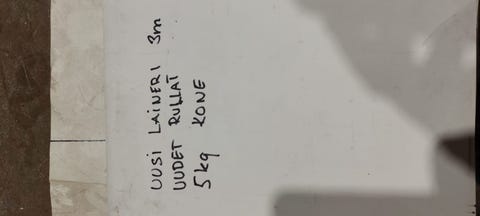 UUSI LAINERI 3m
UUDET RULLAT
5kg KONE